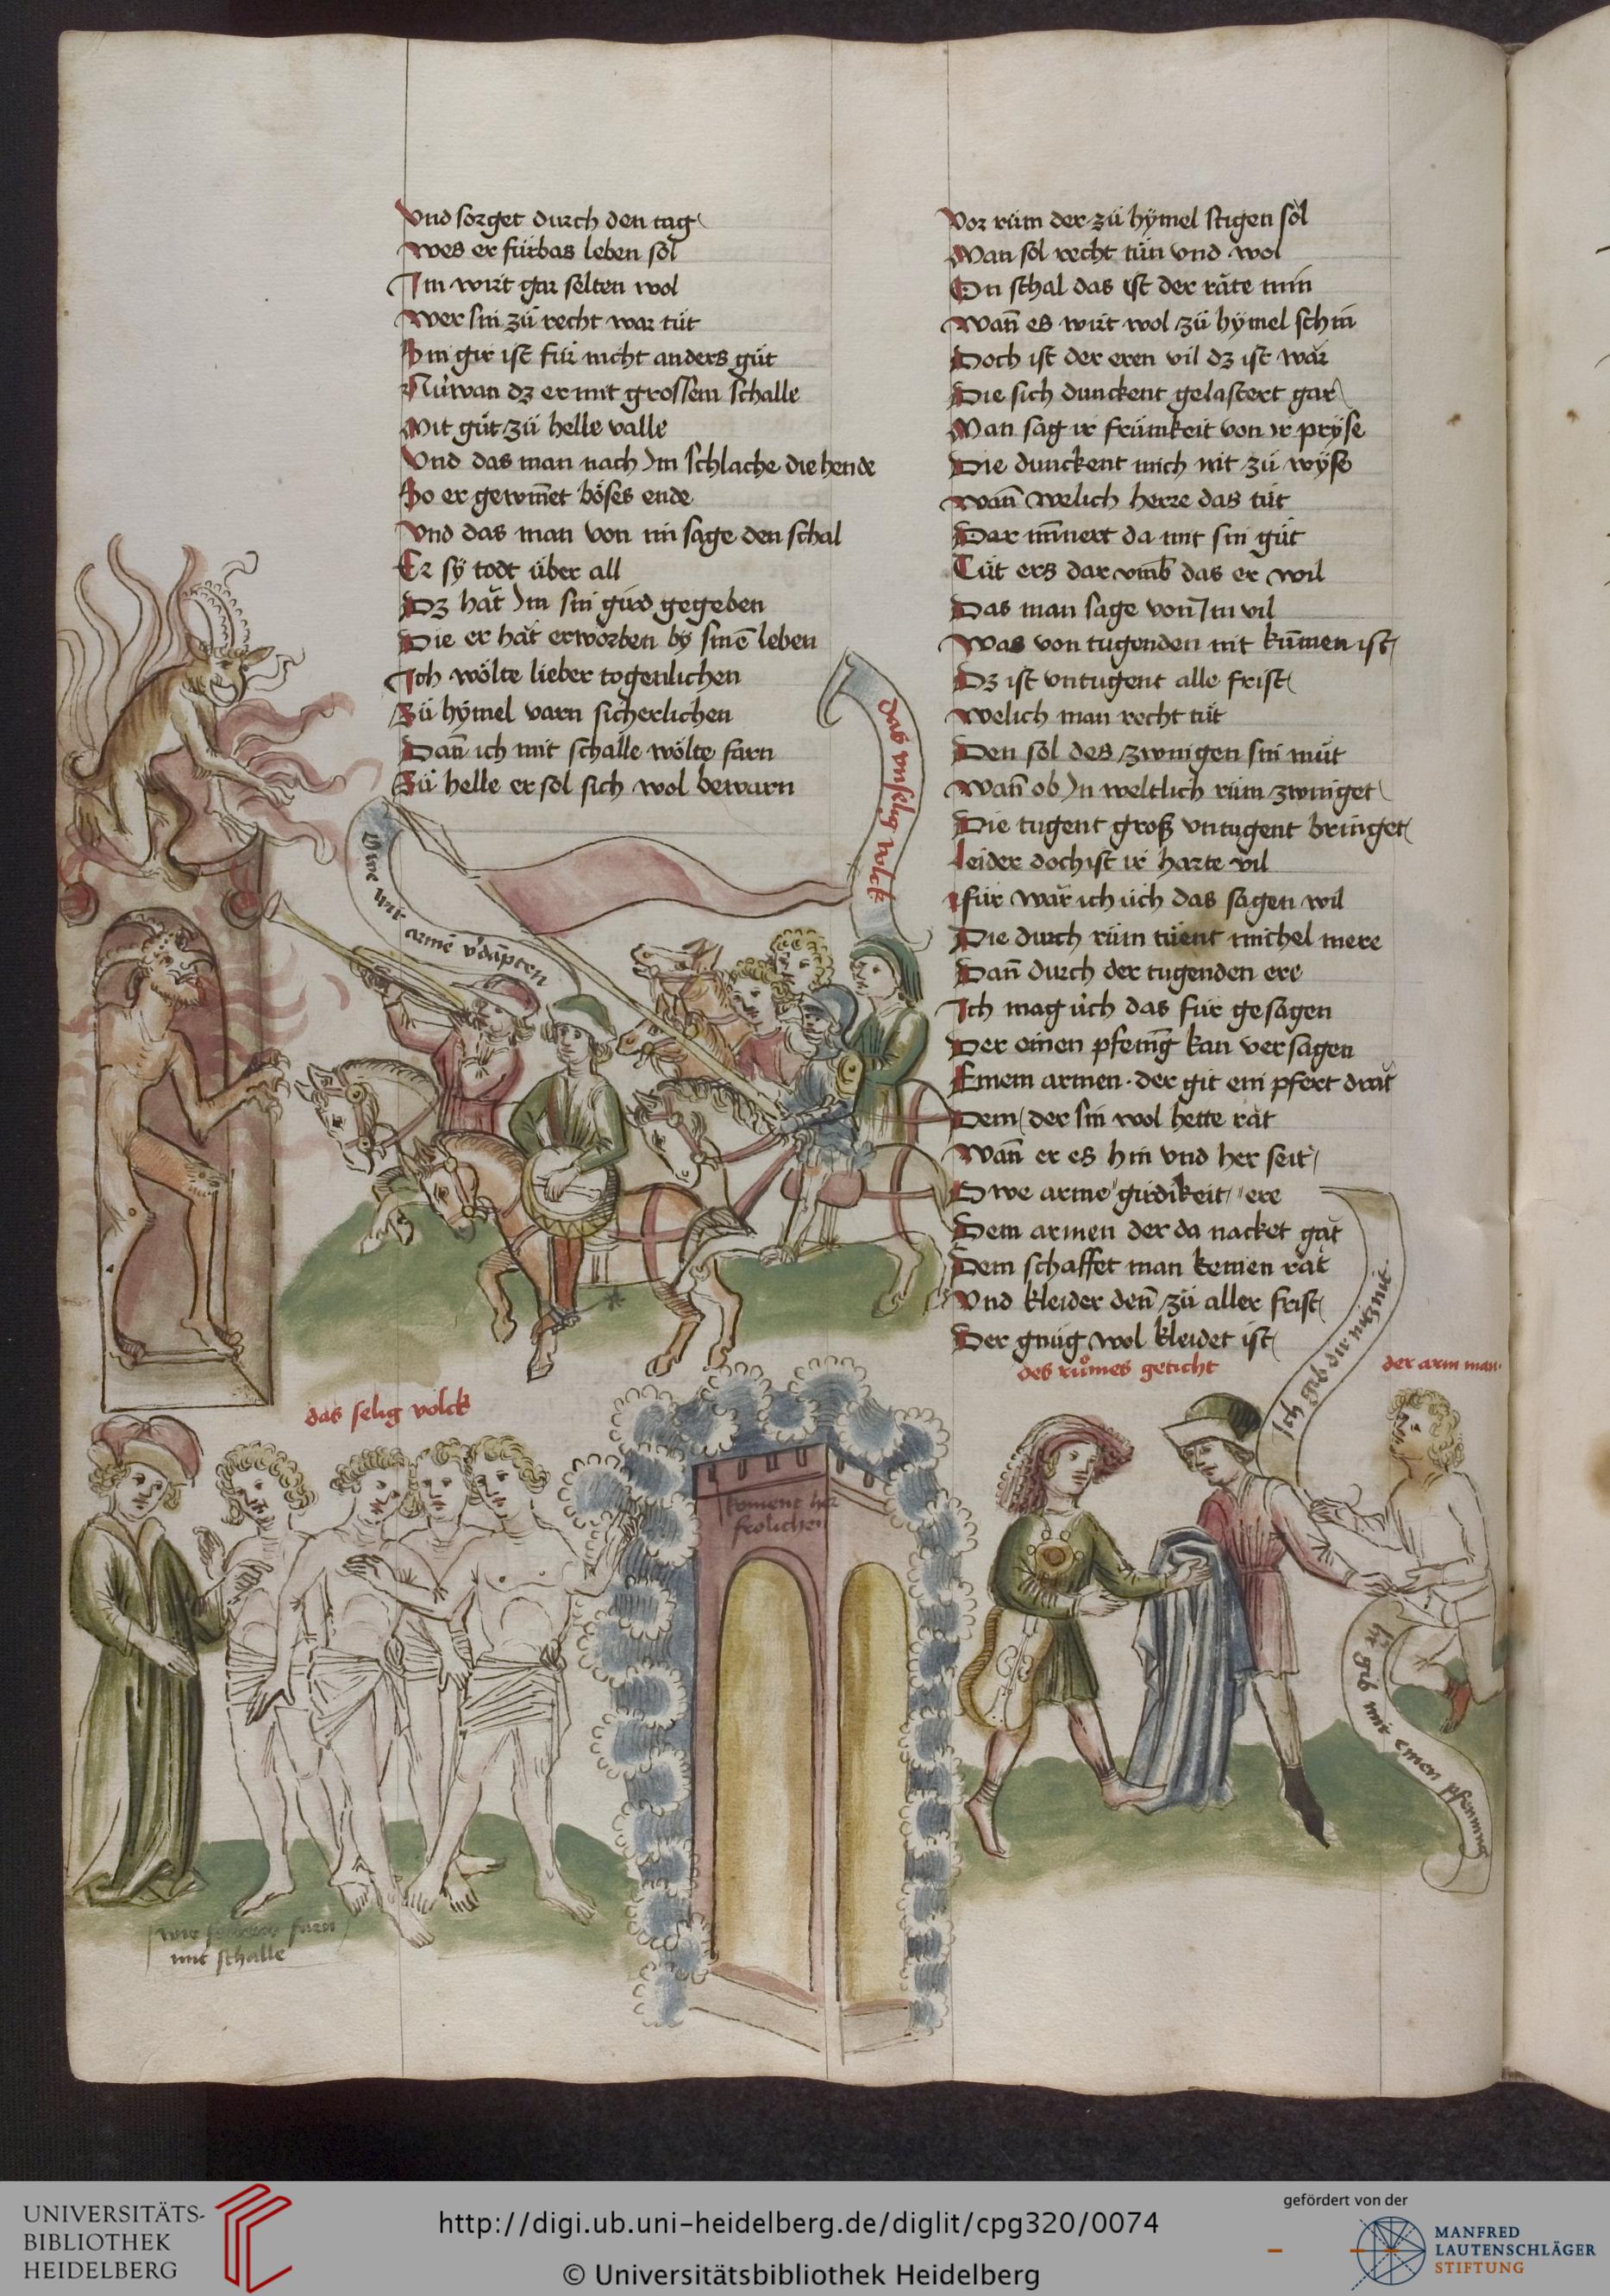 Vnd sorget durch den tag
Wes er fürbas leben sol
Im wirt gar selten wol
Wer sin zü recht war tüt
Sin gir ist für nicht anders güt
Nüwan dz er mit grossem schalle
Mit güt zü helle valle
Vnd das man nach Im schlache die hende
So er gewiñet böses ende
Vnd das man von im sage den schal
Er sÿ todt über all
Dz hăt Im sin gird gegeben
Die er hăt erworben bÿ sinē leben
Ich wölte lieber togenlichen
Zü hÿmel varn sicherlichen
Dañ ich mit schalle wölte farn
Zü helle er sol sich wol bewarn
Vor rüm der zü hÿmel stigen sol
Man sol recht tün vnd wol
On schal das ist der räte min
Wañ es wirt wol zü hÿmel schin
Doch ist der eren vil dz ist wăr
Die sich dunckent gelastert gar
Man sag ir frümkeit von ir prÿse
Die dunckent mich nit zü wÿse
Wañ welich herre das tüt
Dar iñnert da mit sin güt
Tüt ers dar vmb das er wil
Das man sage von Im vil
Was von tugenden nit kum̄en ist
Dz ist vntugent alle frist
Welich man recht tüt
Den sol des zwingen sin müt
Wañ ob In weltlich rüm zwinget
Die tugent groß vntugent bringet
leider doch ist ir harte vil
für wăr ich üch das sagen wil
Die durch rüm tüent michel mere
Dañ durch der tugenden ere
Ich mag üch das für gesagen
Der einen pfenīg kan versagen
Einem armen der git ein pfert drăt
Dem der sin wol hette răt
Wañ er es hin vnd her seit
Owe arme girdikeit ere
Dem armen der da nacket găt
Dem schaffet man keinen răt
Vnd kleider deñ zü aller frist
Der gnüg wol kleidet ist
das vnselig volck
Owe wir armē v'dāpten
das selig volck
des růmes geticht
der arm man
Ich gib dir nitznit
h'r gib mir einen pfenning
koment her
frolichen
wir farn
mit schalle
UNIVERSITÄTS-
BIBLIOTHEK
HEIDELBERG
http://digi.ub.uni-heidelberg.de/diglit/cpg320/0074
© Universitätsbibliothek Heidelberg
gefördert von der
MANFRED
LAUTENSCHLÄGER
STIFTUNG